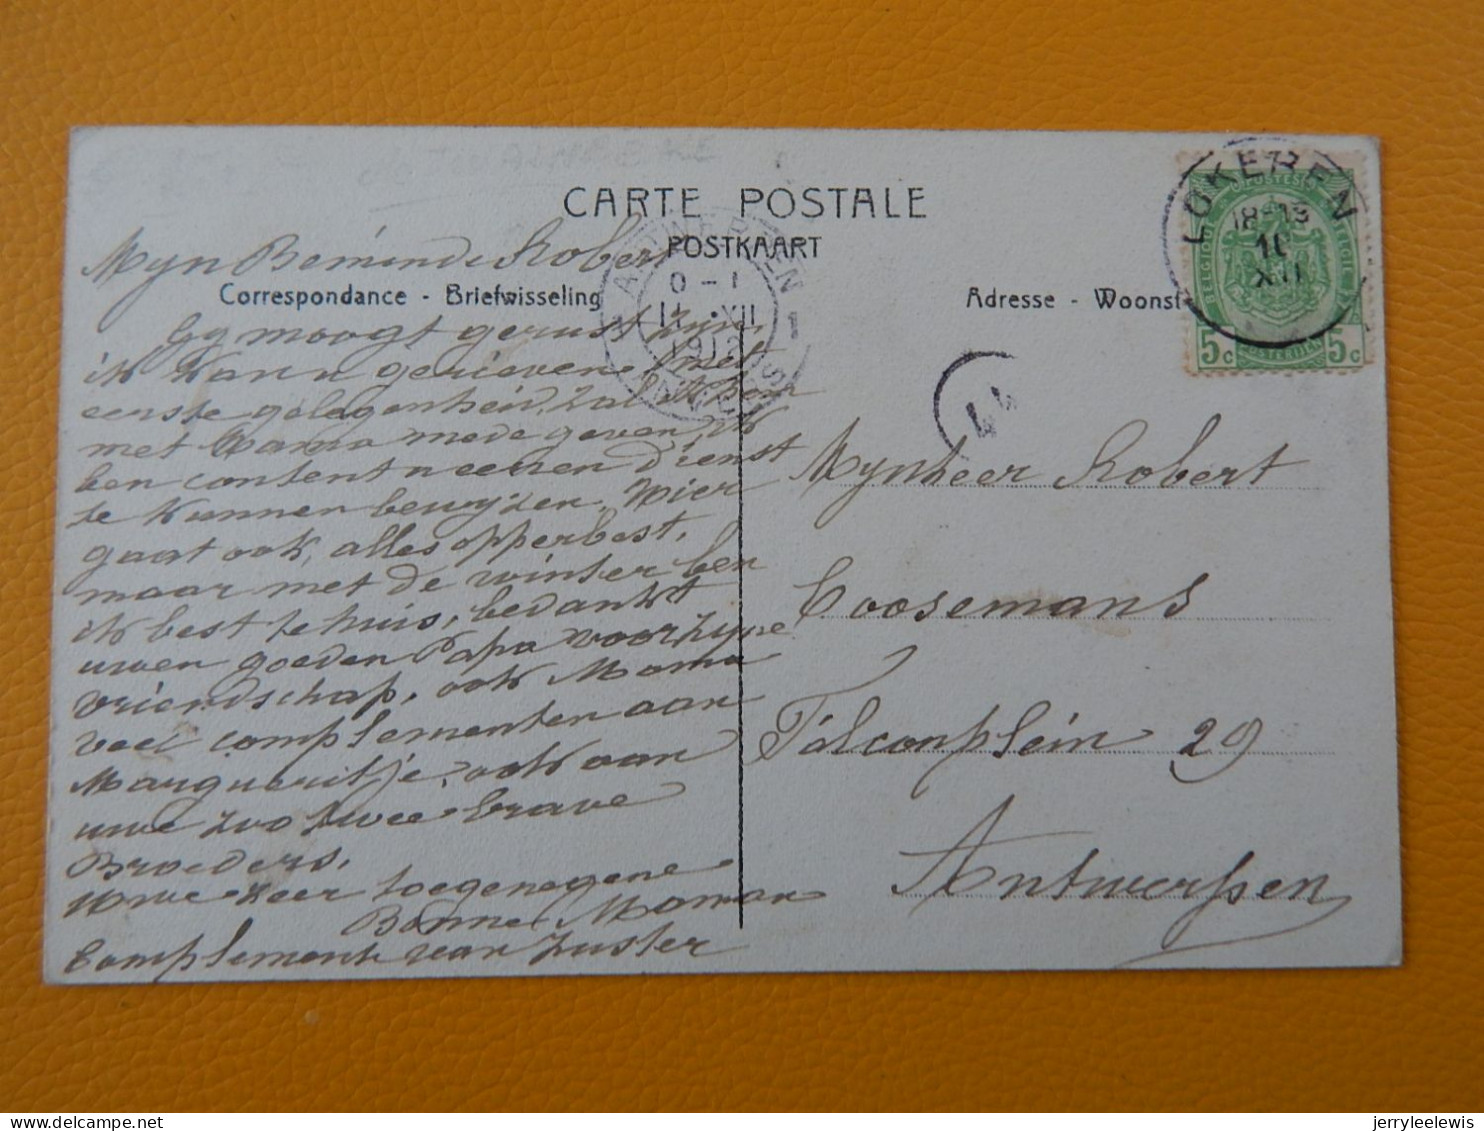 CARTE POSTALE
POSTKAART
Correspondance - Briefwisseling
Adresse - Woonst
LOKEREN
18-19
XII
BELGIQUE
BELGIE
POSTERIJEN
5c 5c
ANTWERPEN 1
0-1
11 XII
1912
ANVERS
44
Myn Beminde Robert
Gy moogt gerust zyn,
ik kan u gerieven met
eerste gelegenheid, zal ik hem
met Mama mede geven ik
ben content u eenen dienst
te kunnen bewyzen. Hier
gaat ook alles opperbest,
maar met de winter ben
ik best te huis, bedankt
uwen goeden Papa voor zyne
vriendschap, ook Mama
veel complementen aan
Margueritje, ook aan
uwe zoo twee brave
Broeders,
Uwe zeer toegenegene
Bonne Maman
Complement van Zuster
Mynheer Robert
Coosemans
Falconplein 29
Antwerpen
jerryleelewis